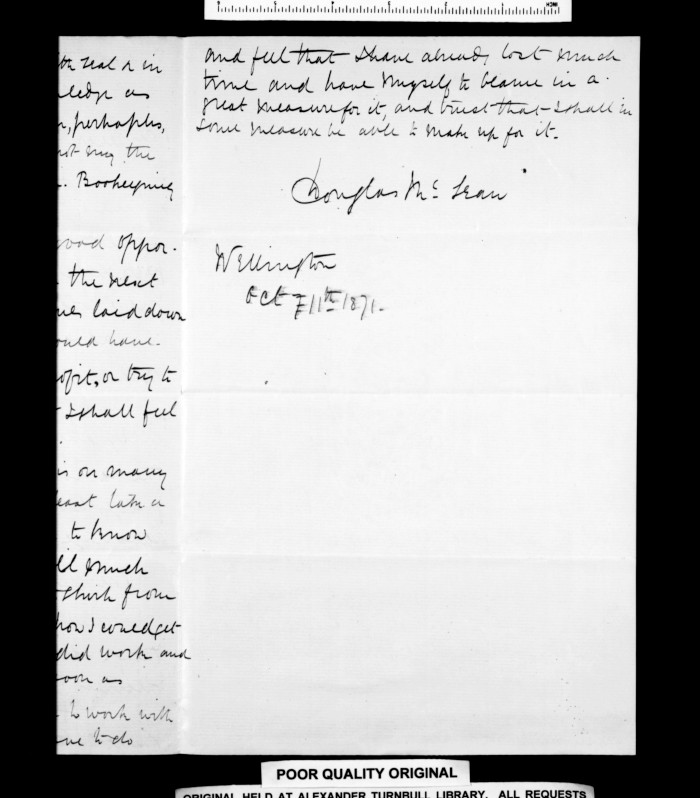 the real & in
ledge as
perhaphs,
not my the
Bookeeping
good oppor-
the next
laid down
ould have
ofit, or try to
I shall feel
is on many
least take a
to know
ll much
think from
how I could get
did work and
soon as
to work with
me to do
and feel that I have already lost much
time and have myself to blame in a
great measure for it, and trust that I shall in
some measure be able to make up for it.
Douglas McLean
Wellington
Oct 11th 1871.
POOR QUALITY ORIGINAL
ORIGINAL HELD AT ALEXANDER TURNBULL LIBRARY. ALL REQUESTS